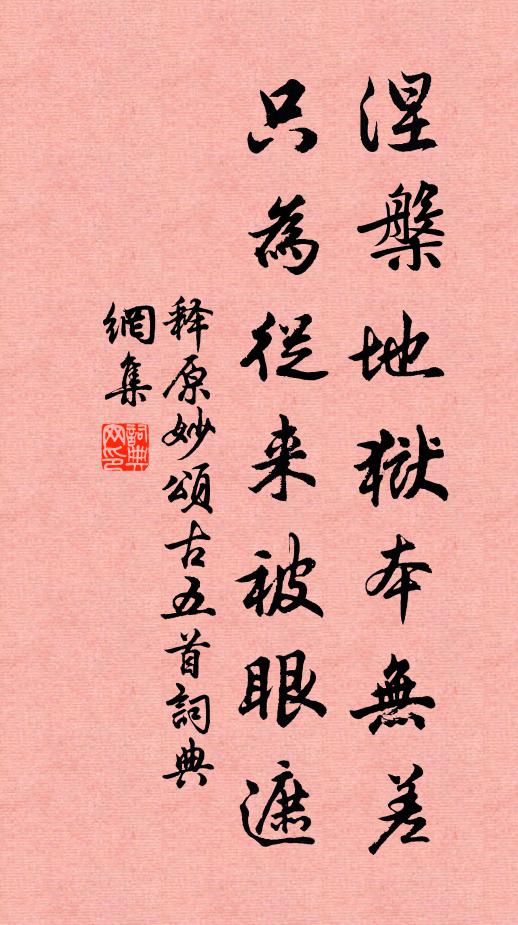 涅槃地獄本無差
只為從来被眼遮
释原妙頌古五首詞典
網集
詞典
网印